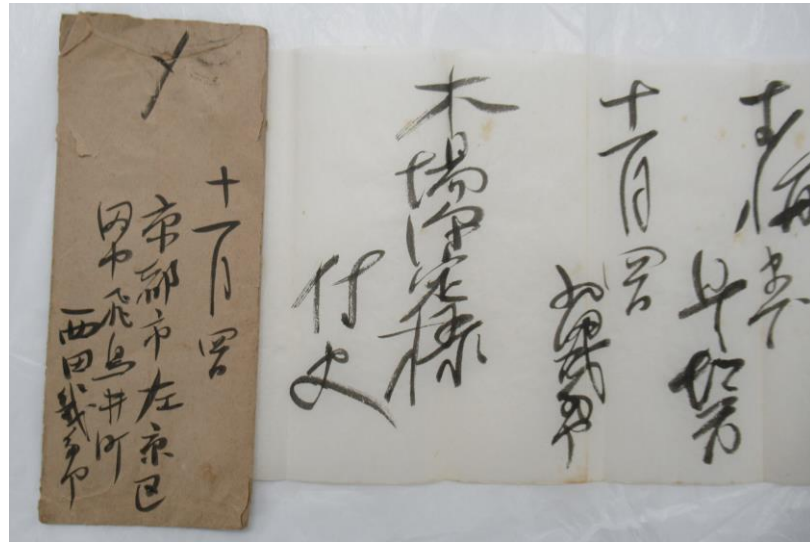 十一月四日
西田幾多郎
木場深定様
侍史
〆
十一月四日
京都市左京区
田中飛鳥井町
西田幾多郎